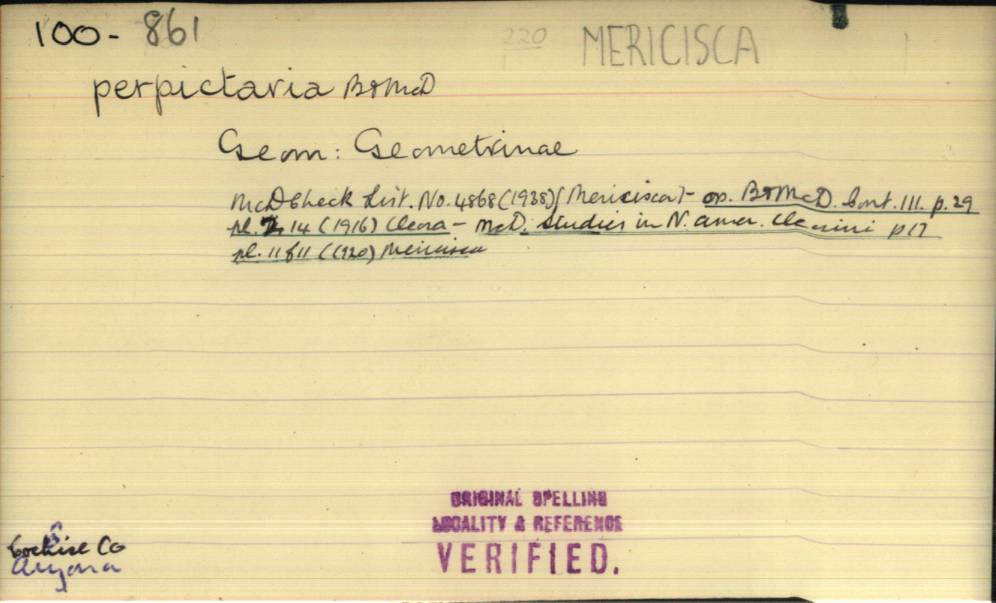 100-861
220 MERICISCA
perpictaria B&McD
Geom: Geometrinae
McD Check List. No. 4868 (1938) (Mericisca) - op. B&McD. Cont. III. p. 29
pl. 2 14 (1916) Cleora - McD. Studies in N. Amer. Cleorini p 17
pl. 11 f 11 (1920) Mericisca
ORIGINAL SPELLING
LOCALITY & REFERENCE
VERIFIED.
Cochise Co
Arizona